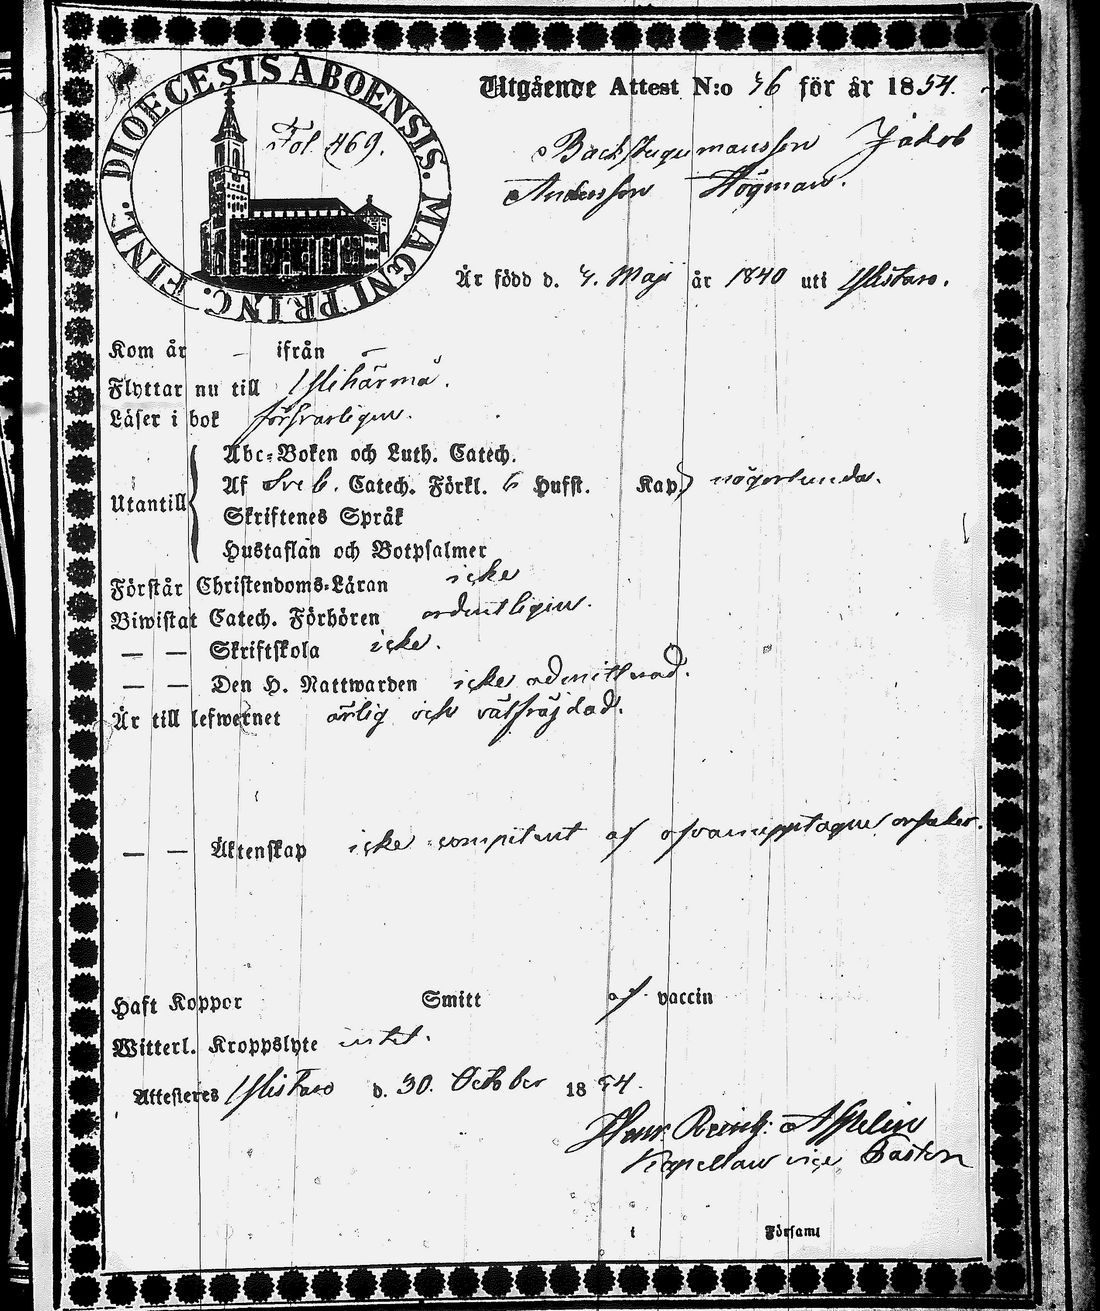 DIOECESIS ABOENSIS. MAGNI PRINC. FINL.
Fol 469.
Utgående Attest N:o 46 för år 1854.
Backstugumansson Jakob
Andersson Högman.
Är född d. 4. Maji år 1840 uti Ylistaro.
Kom år – ifrån –
Flyttar nu till Ylihärmä.
Läser i bok försvarligen.
Utantill
Abc-Boken och Luth. Catech.
Af Sveb. Catech. Förkl. 6 Hufst. Kap. någorlunda.
Skriftenes Språk
Hustaflan och Botpsalmer
Förstår Christendoms-Läran icke
Biwistat Catech. Förhören ordentligen.
— — Skriftskola icke.
— — Den H. Nattwarden icke admitterad.
Är till lefwernet ärlig och välfräjdad.
— — Äktenskap icke competent af ofvanupptagne orsaker.
Haft Koppor Smitt af vaccin
Witterl. Kroppslyte intet.
Attesteres Ylistaro d. 30. October 1854.
Henr. Reinh. Asplin
Kapellan vice Pastor
i Församl